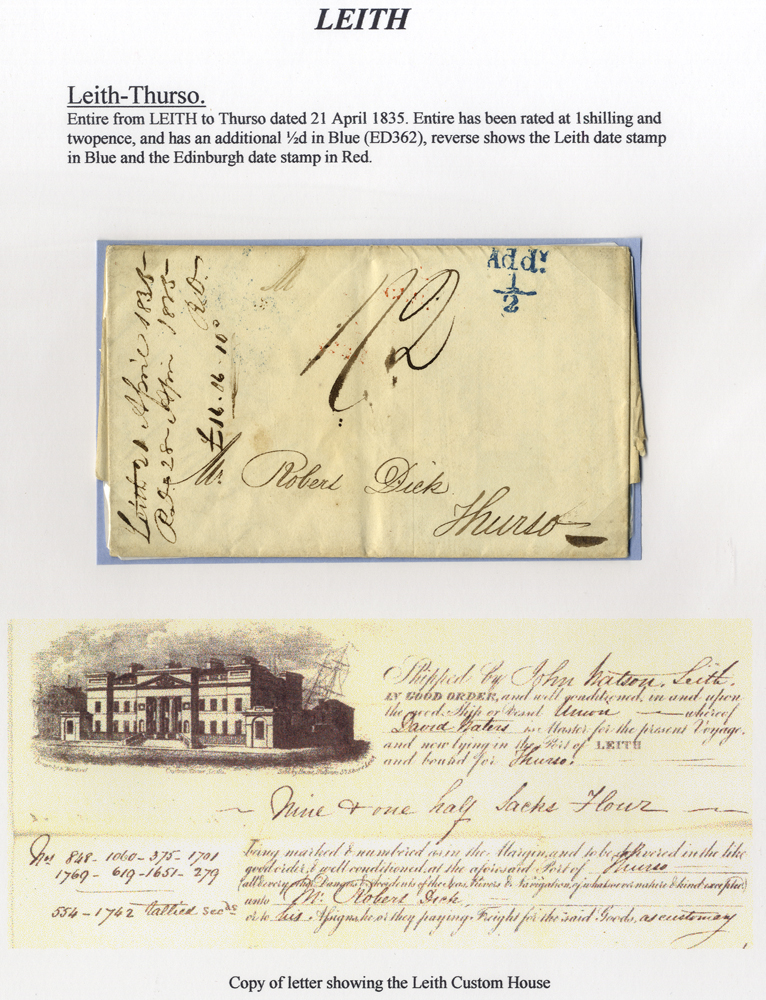 LEITH
Leith-Thurso.
Entire from LEITH to Thurso dated 21 April 1835. Entire has been rated at 1shilling and
twopence, and has an additional ½d in Blue (ED362), reverse shows the Leith date stamp
in Blue and the Edinburgh date stamp in Red.
Leith 21 April 1835
28 April 1835
£16.06.10
Addl.
1/2
1/2
Mr. Robert Dick
Thurso
Custom House, Leith
Shipped by John Watson, Leith.
IN GOOD ORDER, and well conditioned, in and upon
the good Ship or Vessel Union whereof
David Waters is Master for the present Voyage.
and now lying in the Port of LEITH
and bound for Thurso.
Nine & one half Sacks Flour
Nos 848 - 1060 - 375 - 1701
1769 - 619 - 1651 - 279
554 - 1742 tallied secds
being marked & numbered as in the Margin, and to be delivered in the like
good order, & well conditioned, at the aforesaid Port of Thurso
(all & every other Dangers & Accidents of the Seas, Rivers & Navigation, of whatsoever nature & kind excepted)
unto Mr. Robert Dick,
or to his Assigns, he or they paying Freight for the said Goods, as customary
Copy of letter showing the Leith Custom House